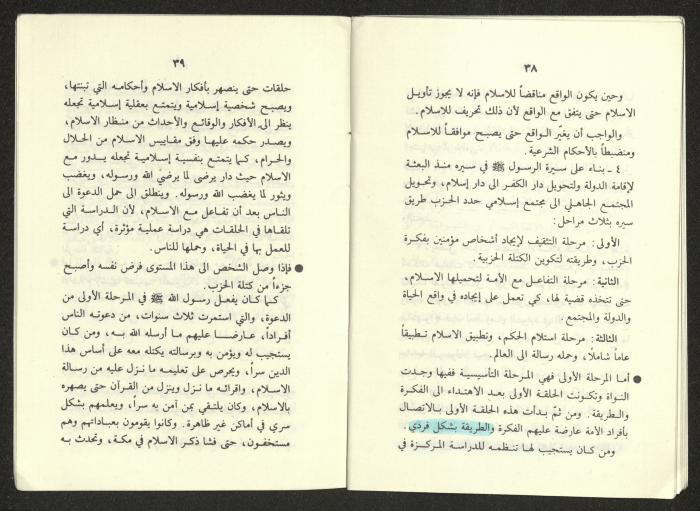 ٣٨
وحين يكون الواقع مناقضاً للاسلام فإنه لا يجوز تأويل
الاسلام حتى يتفق مع الواقع لأن ذلك تحريف للاسلام.
والواجب أن يغيّر الواقع حتى يصبح موافقاً للاسلام
ومنضبطاً بالأحكام الشرعية.
٤ ـ بناء على سيرة الرسول ﷺ في سيره منذ البعثة
لإقامة الدولة ولتحويل دار الكفر الى دار إسلام، وتحويل
المجتمع الجاهلي الى مجتمع إسلامي حدد الحزب طريق
سيره بثلاث مراحل:
الأولى: مرحلة التثقيف لإيجاد أشخاص مؤمنين بفكرة
الحزب، وطريقته لتكوين الكتلة الحزبية.
الثانية: مرحلة التفاعل مع الأمة لتحميلها الاسلام،
حتى تتخذه قضية لها، كي تعمل على إيجاده في واقع الحياة
والدولة والمجتمع.
الثالثة: مرحلة استلام الحكم، وتطبيق الاسلام تطبيقاً
عاماً شاملاً، وحمله رسالة الى العالم.
● أما المرحلة الأولى فهي المرحلة التأسيسية ففيها وجدت
النواة وتكونت الحلقة الأولى بعد الاهتداء الى الفكرة
والطريقة. ومن ثمّ بدأت هذه الحلقة الأولى بالاتصال
بأفراد الأمة عارضة عليهم الفكرة والطريقة بشكل فردي.
ومن كان يستجيب لها تنظمه للدراسة المركزة في
٣٩
حلقات حتى ينصهر بأفكار الاسلام وأحكامه التي تبنتها،
ويصبح شخصية إسلامية ويتمتع بعقلية إسلامية تجعله
ينظر الى الأفكار والوقائع والأحداث من منظار الاسلام،
ويصدر حكمه عليها وفق مقاييس الاسلام من الحلال
والحرام، كما يتمتع بنفسية إسلامية تجعله يدور مع
الاسلام حيث دار يرضى لما يرضي الله ورسوله، ويغضب
ويثور لما يغضب الله ورسوله. وينطلق الى حمل الدعوة الى
الناس بعد أن تفاعل مع الاسلام، لأن الدراسة التي
تلقاها في الحلقات هي دراسة عملية مؤثرة، أي دراسة
للعمل بها في الحياة، وحملها للناس.
● فإذا وصل الشخص الى هذا المستوى فرض نفسه وأصبح
جزءاً من كتلة الحزب.
كما كان يفعل رسول الله ﷺ في المرحلة الأولى من
الدعوة، والتي استمرت ثلاث سنوات، من دعوته الناس
أفراداً، عارضاً عليهم ما أرسله الله به، ومن كان
يستجيب له ويؤمن به وبرسالته يكتله معه على أساس هذا
الدين سراً، ويحرص على تعليمه ما نزل عليه من رسالة
الاسلام، واقرائه ما نزل وينزل من القرآن حتى يصهره
بالاسلام، وكان يلتقي بمن آمن به سراً، ويعلمهم بشكل
سري في أماكن غير ظاهرة. وكانوا يقومون بعباداتهم وهم
مستخفون، حتى فشا ذكر الاسلام في مكة، وتحدث به